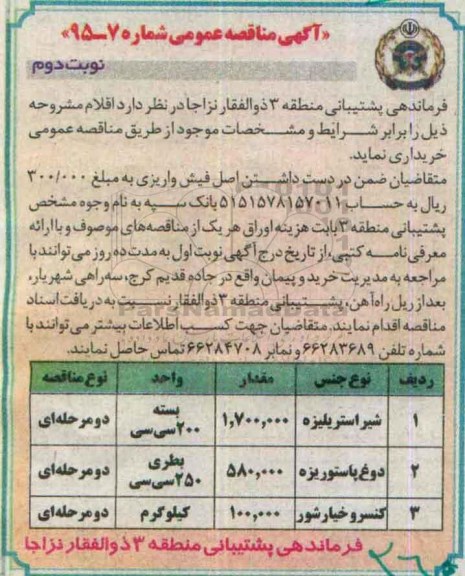 «آگهی مناقصه عمومی شماره ۷ـ۹۵»
نوبت دوم
فرماندهی پشتیبانی منطقه ۳ ذوالفقار نزاجا در نظر دارد اقلام مشروحه
ذیل را برابر شرایط و مشخصات موجود از طریق مناقصه عمومی
خریداری نماید.
متقاضیان ضمن در دست داشتن اصل فیش واریزی به مبلغ ۳۰۰/۰۰۰
ریال به حساب ۵۱۵۱۵۷۸۱۵۷۰۱۱ بانک سپه به نام وجوه مشخص
پشتیبانی منطقه ۳ بابت هزینه اوراق هر یک از مناقصه‌های موصوف و با ارائه
معرفی نامه کتبی، از تاریخ درج آگهی نوبت اول به مدت ده روز می‌توانند با
مراجعه به مدیریت خرید و پیمان واقع در جاده قدیم کرج، سه‌راهی شهریار،
بعد از ریل راه‌آهن، پشتیبانی منطقه ۳ ذوالفقار نسبت به دریافت اسناد
مناقصه اقدام نمایند. متقاضیان جهت کسب اطلاعات بیشتر می‌توانند با
شماره تلفن ۶۶۲۸۳۶۸۹ و نمابر ۶۶۲۸۴۷۰۸ تماس حاصل نمایند.
ردیف نوع جنس مقدار واحد نوع مناقصه
۱ شیر استریلیزه ۱,۷۰۰,۰۰۰ بسته ۲۰۰سی‌سی دو مرحله‌ای
۲ دوغ پاستوریزه ۵۸۰,۰۰۰ بطری ۲۵۰سی‌سی دو مرحله‌ای
۳ کنسرو خیارشور ۱۰۰,۰۰۰ کیلوگرم دو مرحله‌ای
فرماندهی پشتیبانی منطقه ۳ ذوالفقار نزاجا
ParsNamadData